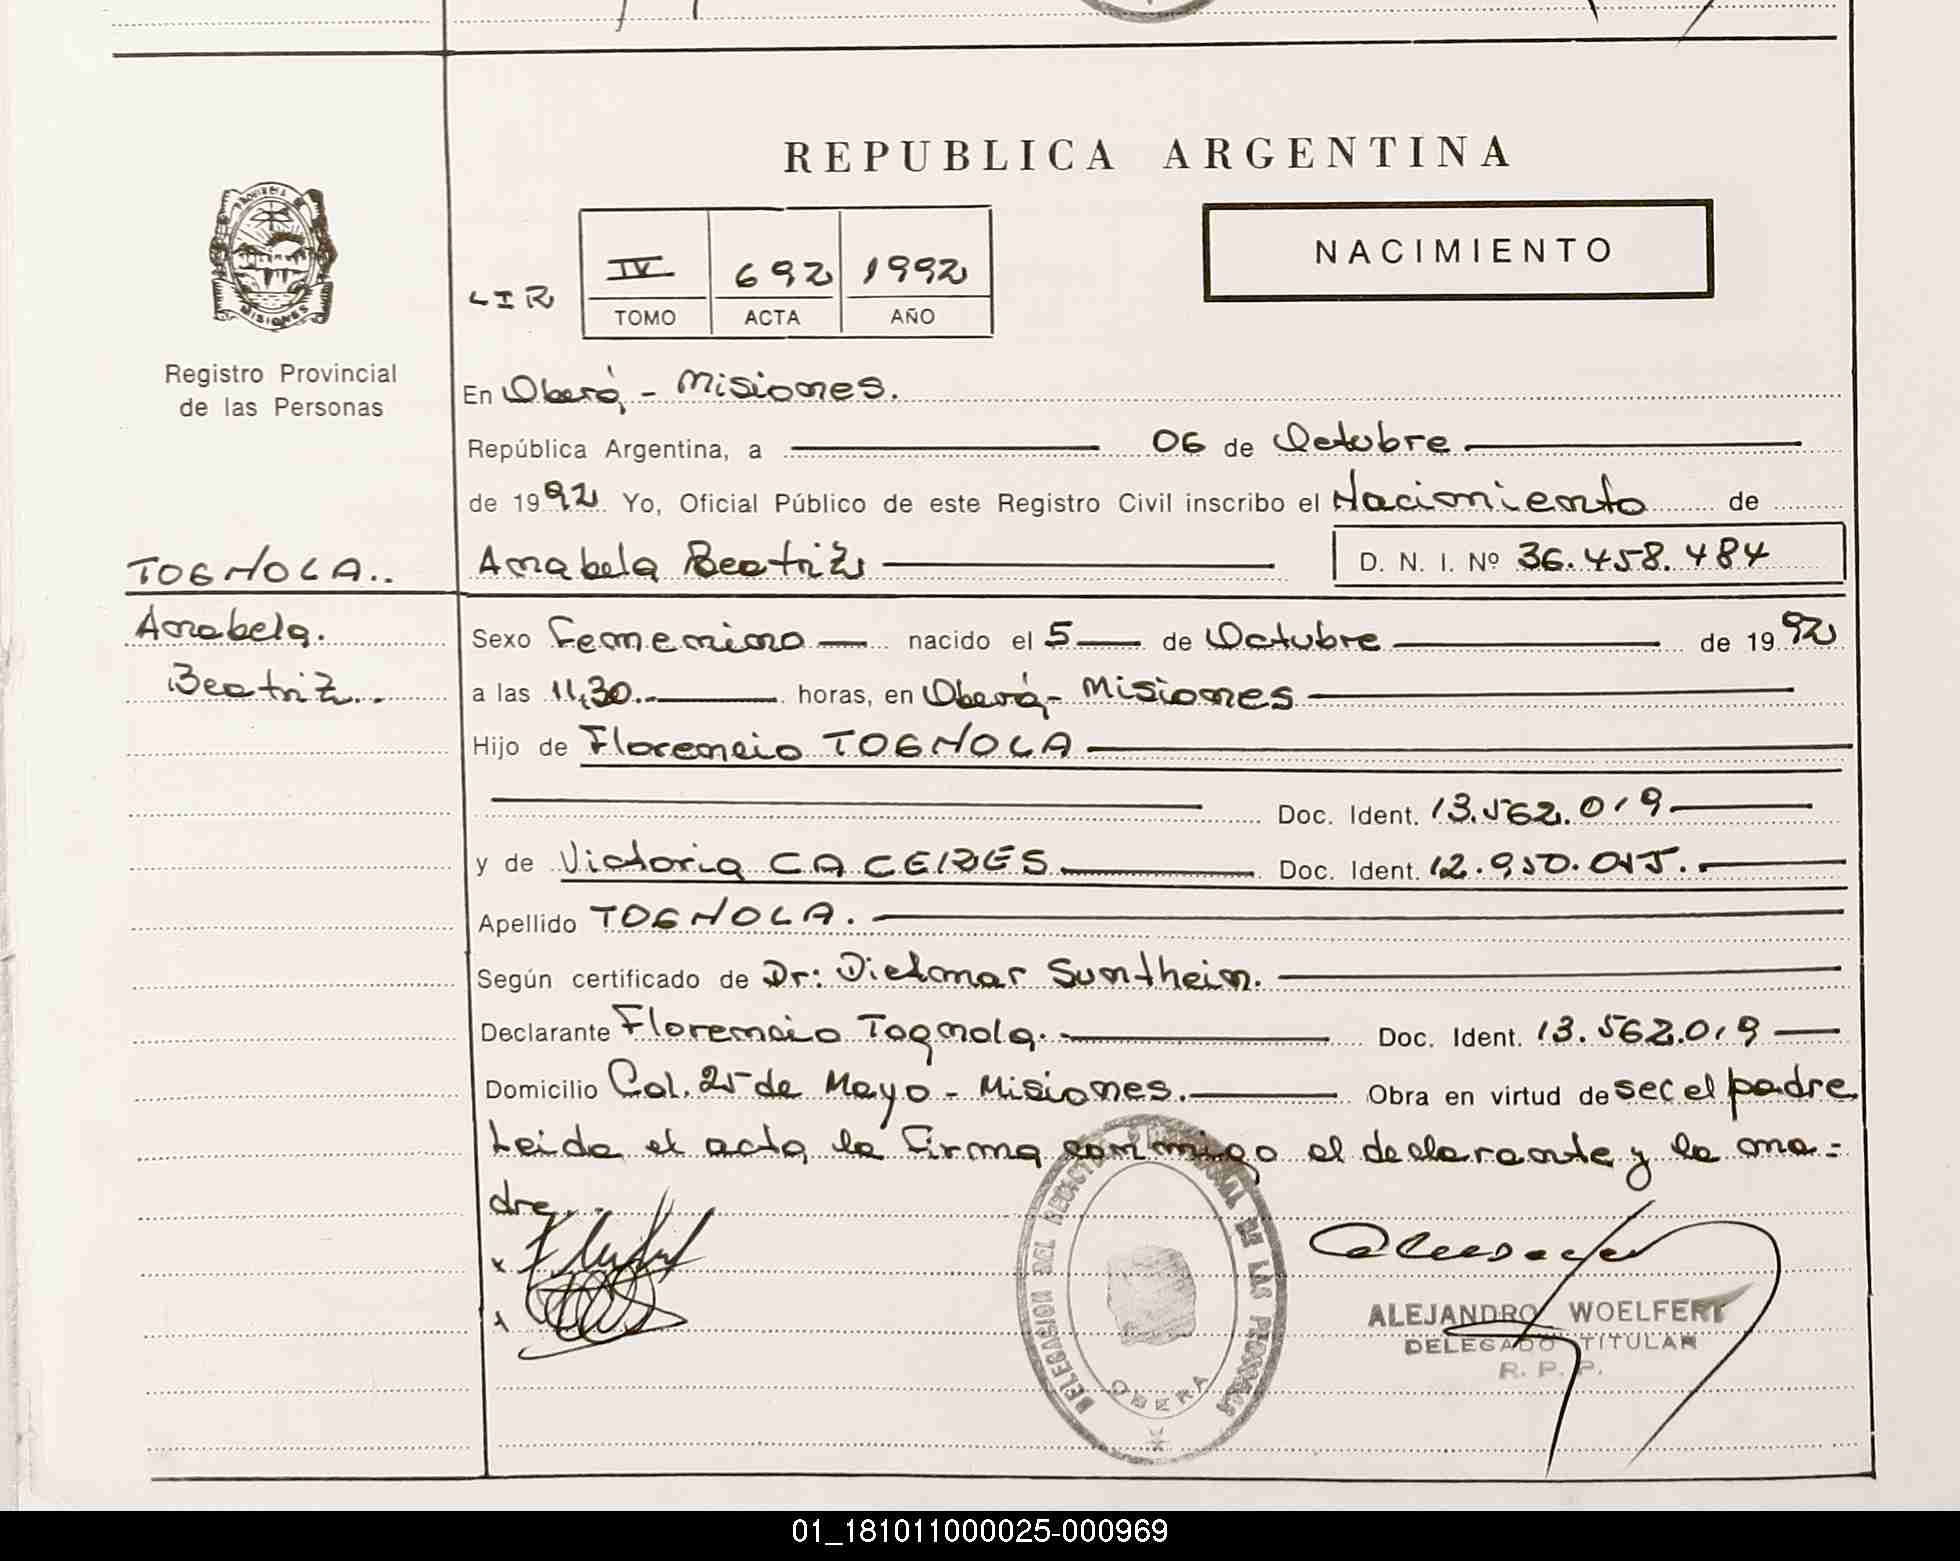 REPUBLICA ARGENTINA
NACIMIENTO
LIR
IV 692 1992
TOMO ACTA AÑO
PROVINCIA
MISIONES
Registro Provincial
de las Personas
En Oberá - Misiones.
República Argentina, a 06 de Octubre
de 1992 Yo, Oficial Público de este Registro Civil inscribo el Nacimiento de
TOGNOLA..
Anabela Beatriz D. N. I. Nº 36.458.484
Anabela.
Sexo Femenino nacido el 5 de Octubre de 1992
Beatriz..
a las 11,30.- horas, en Oberá - Misiones
Hijo de Florencio TOGNOLA
Doc. Ident. 13.562.019
y de Victoria CACEIRES Doc. Ident. 12.950.055.
Apellido TOGNOLA.
Según certificado de Dr: Dietmar Sunthein.
Declarante Florencio Tognola. Doc. Ident. 13.562.019
Domicilio Col. 25 de Mayo - Misiones. Obra en virtud de ser el padre
Leida el acta la firma conmigo el declarante y la ma=
dre..
DELEGACION DEL REGISTRO PROVINCIAL DE LAS PERSONAS
OBERA
ALEJANDRO WOELFERT
DELEGADO TITULAR
R. P. P.
01_181011000025-000969